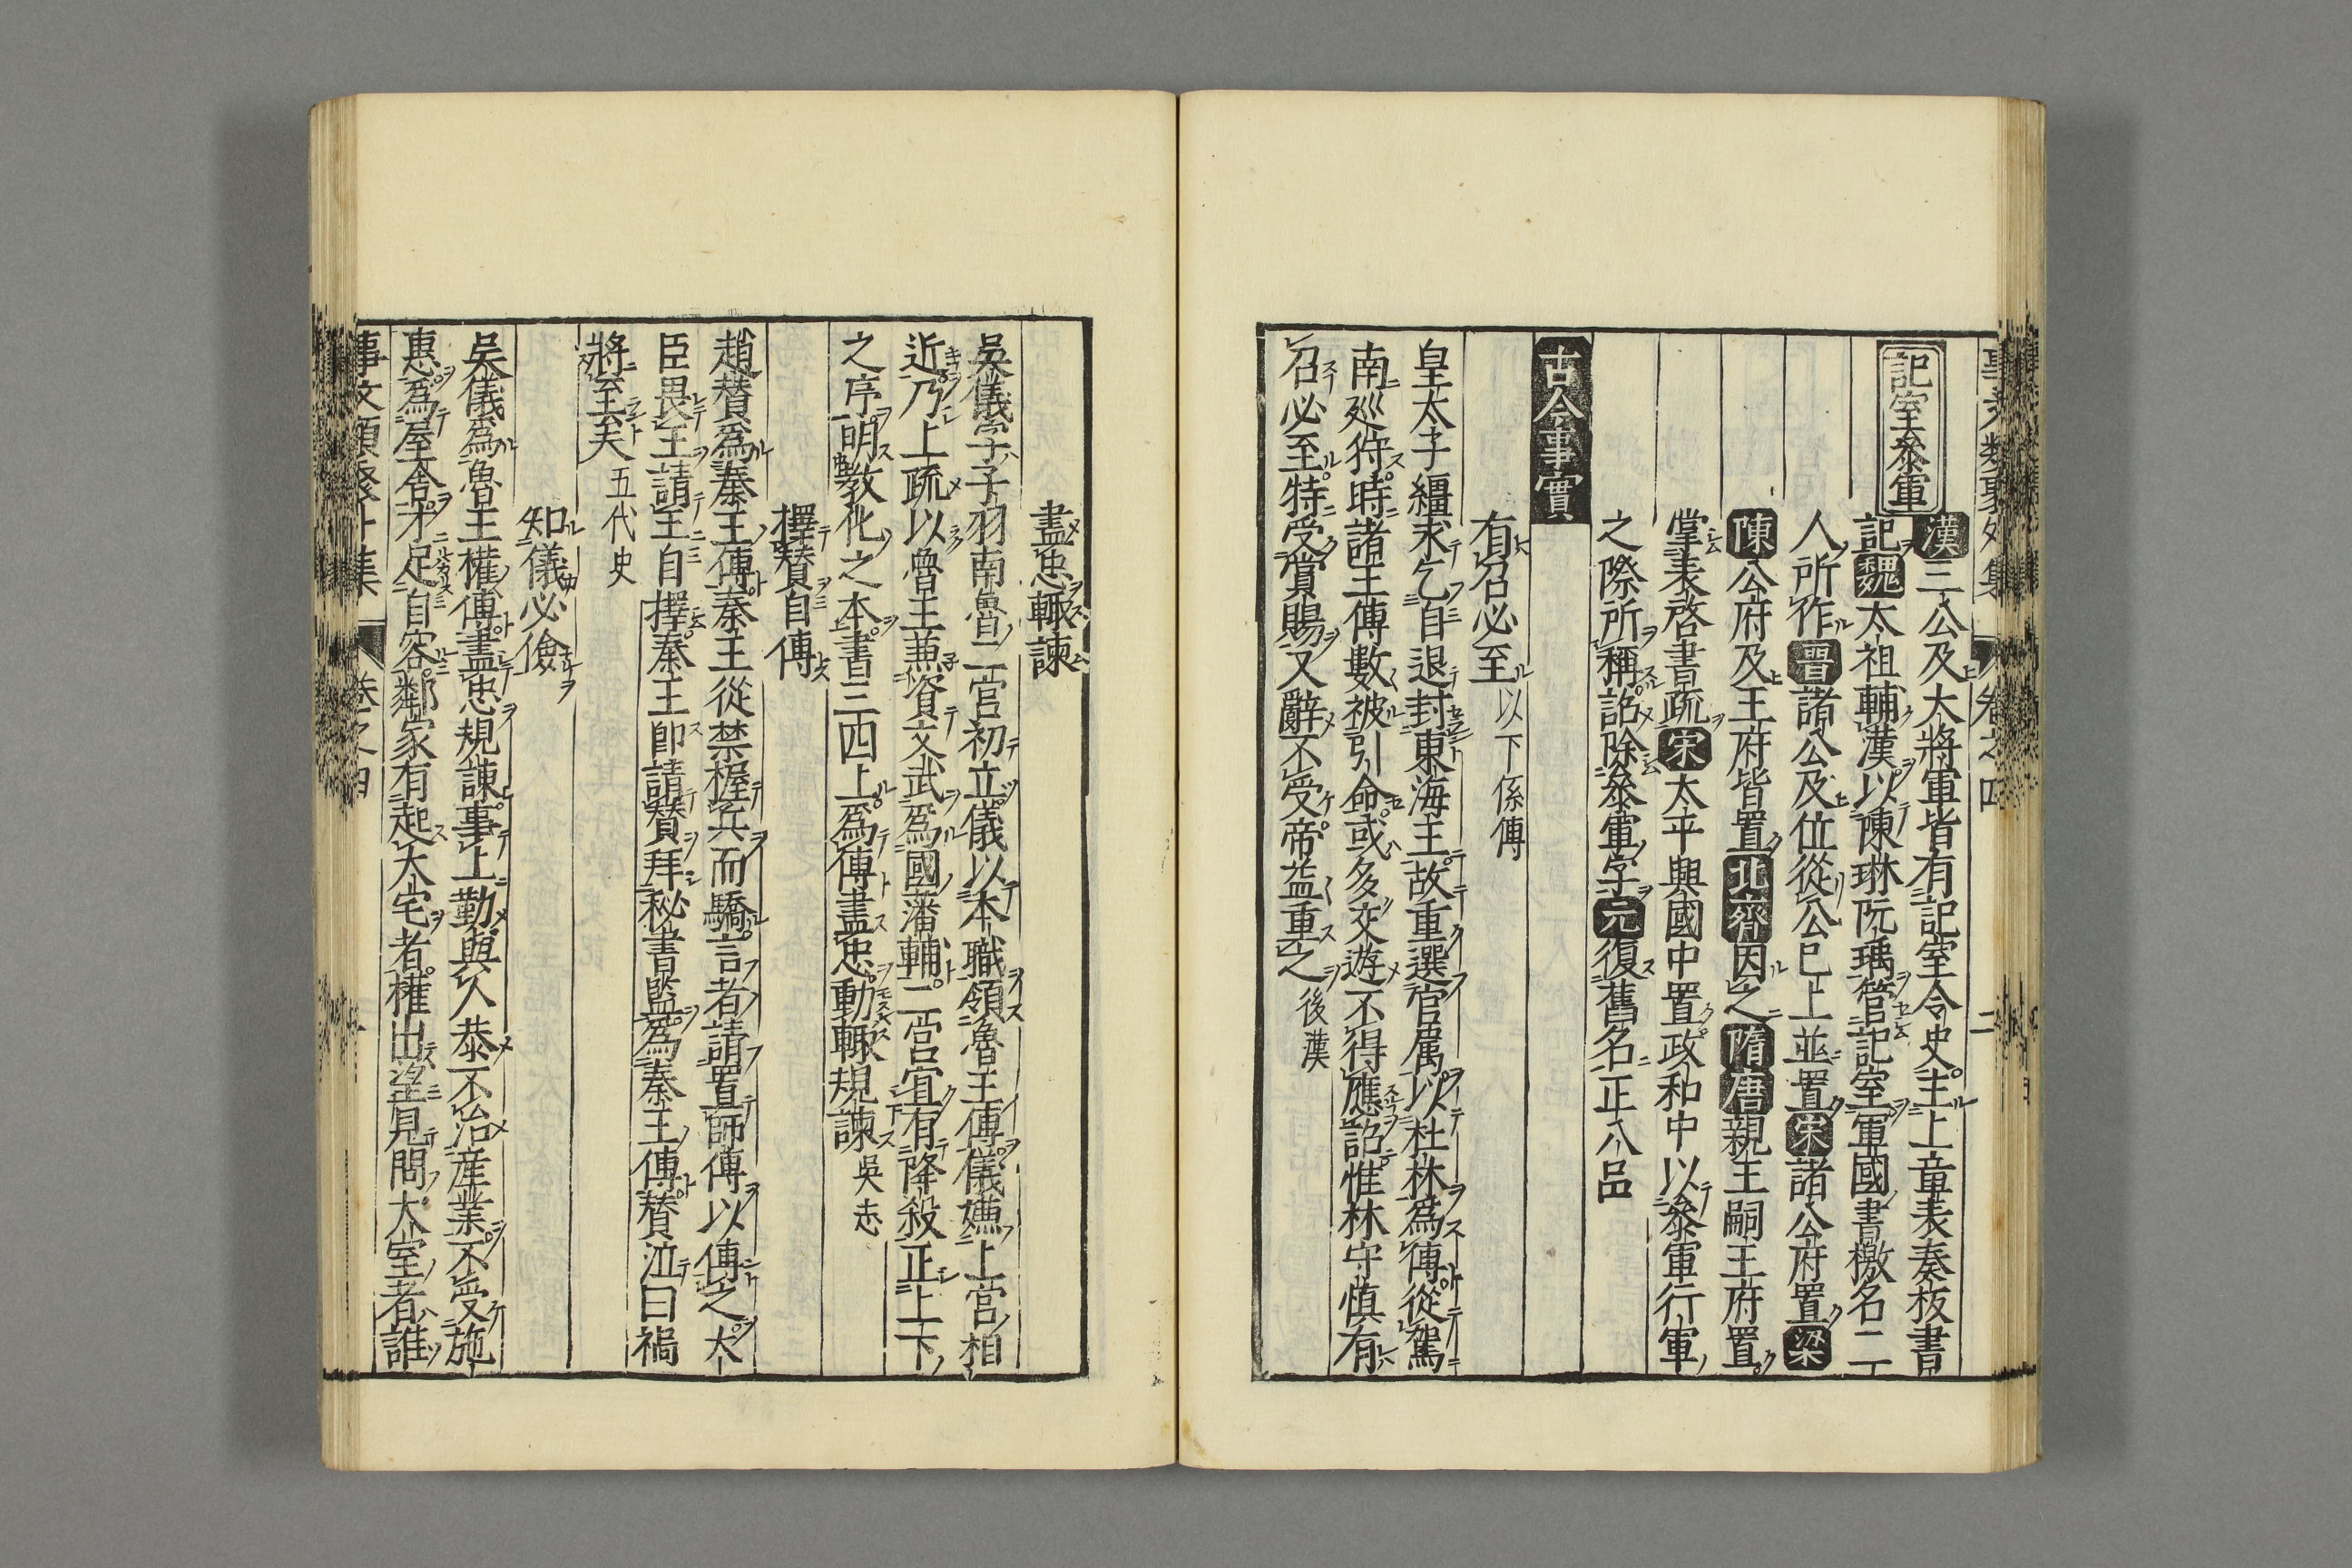 事文類聚外集 卷之四 二
記室參軍
漢三公及大將軍皆有記室令史主上章表奏校書
記魏太祖輔漢以陳琳阮瑀管記室軍國書檄名二
人所作晉諸公及位從公已上並置宋諸公府置梁
陳公府及王府皆置北齊因之隋唐親王嗣王府置
掌表啓書疏宋太平興國中置政和中以參軍行軍
之際所稱詔除參軍字元復舊名正八品
古今事實
有召必至以下係傅
皇太子繮求乞自退封東海王故重選官屬以杜林爲傅從駕
南廵狩時諸王傅數被引命或多交遊不得應詔惟林守慎有
召必至特受賞賜又辭不受帝益重之後漢
盡忠輙諫
吳儀字子羽南魯二宮初立儀以本職領魯王傅儀嫌上宮相
近乃上疏以魯王兼資文武爲國藩輔二宮宜有降殺正上下
之序明教化之本書三四上爲傅盡忠動輙規諫吳志
擇賛自傅
趙賛爲秦王傅秦王從禁握兵而驕言者請置師傅以傅之大
臣畏王請王自擇秦王卽請賛拜秘書監爲秦王傅賛泣曰禍
將至矣五代史
知儀必儉
吳儀爲魯王權傅盡忠規諫事上勤與人恭不治產業不受施
惠爲屋舍才足自容鄰家有起大宅者權出望見問大室者誰
事文類聚外集 卷之四